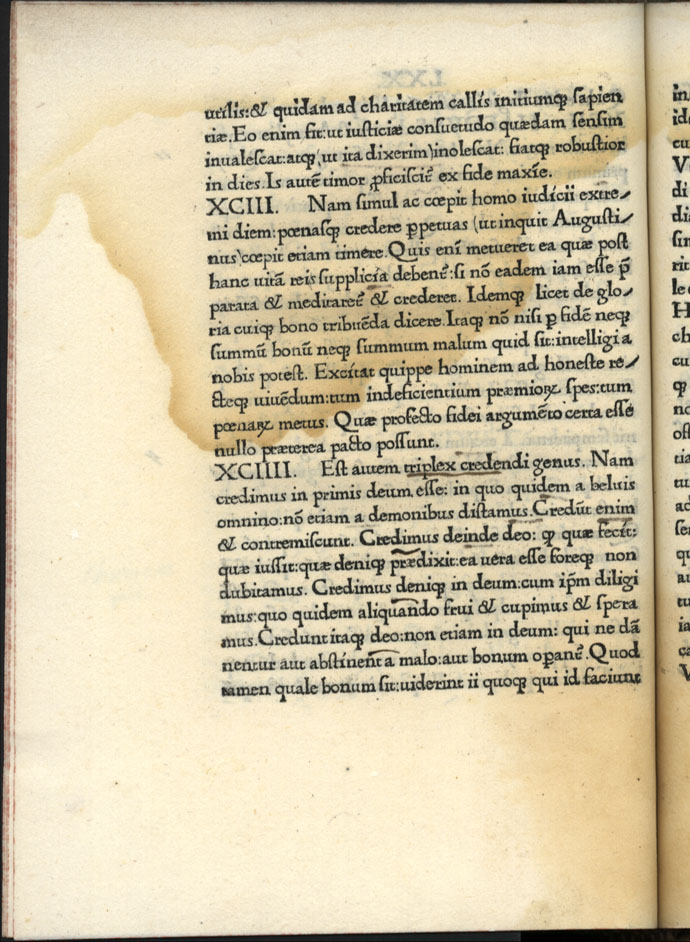 utilis:& quidam ad charitatem callis initiumq̃ sapien
tiæ.Eo enim fit:ut iusticiæ consuetudo quædam sensim
inualescat:atq̃ (ut ita dixerim)inolescat: fiatq̃ robustior
in dies.Is autẽ timor ꝓficiscit̃ ex fide maxĩe.
XCIII. Nam simul ac cœpit homo iudicii extre/
mi diem:pœnasq̃ credere ꝑpetuas (ut inquit Augusti/
nus)cœpit etiam timere.Quis eni metueret ea quæ post
hanc uitã reis supplicia debent̃:si nõ eadem iam esse p̃
parata & meditaret̃ & crederet. Idemq̃ licet de glo/
ria cuiq̃ bono tribuẽda dicere.Itaq̃ nõ nisi ꝑ fidẽ neq̃
summũ bonũ neq̃ summum malum quid sit:intelligi a
nobis potest. Excitat quippe hominem ad honeste re/
cteq̃ uiuẽdum:tum indeficientium præmioꝝ spes:tum
pœnaꝝ metus. Quæ profecto fidei argumẽto certa esse
nullo præterea pacto possunt.
XCIIII. Est autem triplex credendi genus. Nam
credimus in primis deum esse: in quo quidem a beluis
omnino:nõ etiam a demonibus distamus.Credũt enim
& contremiscunt. Credimus deinde deo: q̃ quæ fecit:
quæ iussit:quæ deniq̃ prædixit:ea uera esse foreq̃ non
dubitamus. Credimus deniq̃ in deum:cum ip̃m diligi
mus:quo quidem aliquando frui & cupimus & spera
mus.Credunt itaq̃ deo:non etiam in deum: qui ne dã
nentur aut abstinent a malo:aut bonum oꝑant̃.Quod
tamen quale bonum sit:uiderint ii quoq̃ qui id faciunt